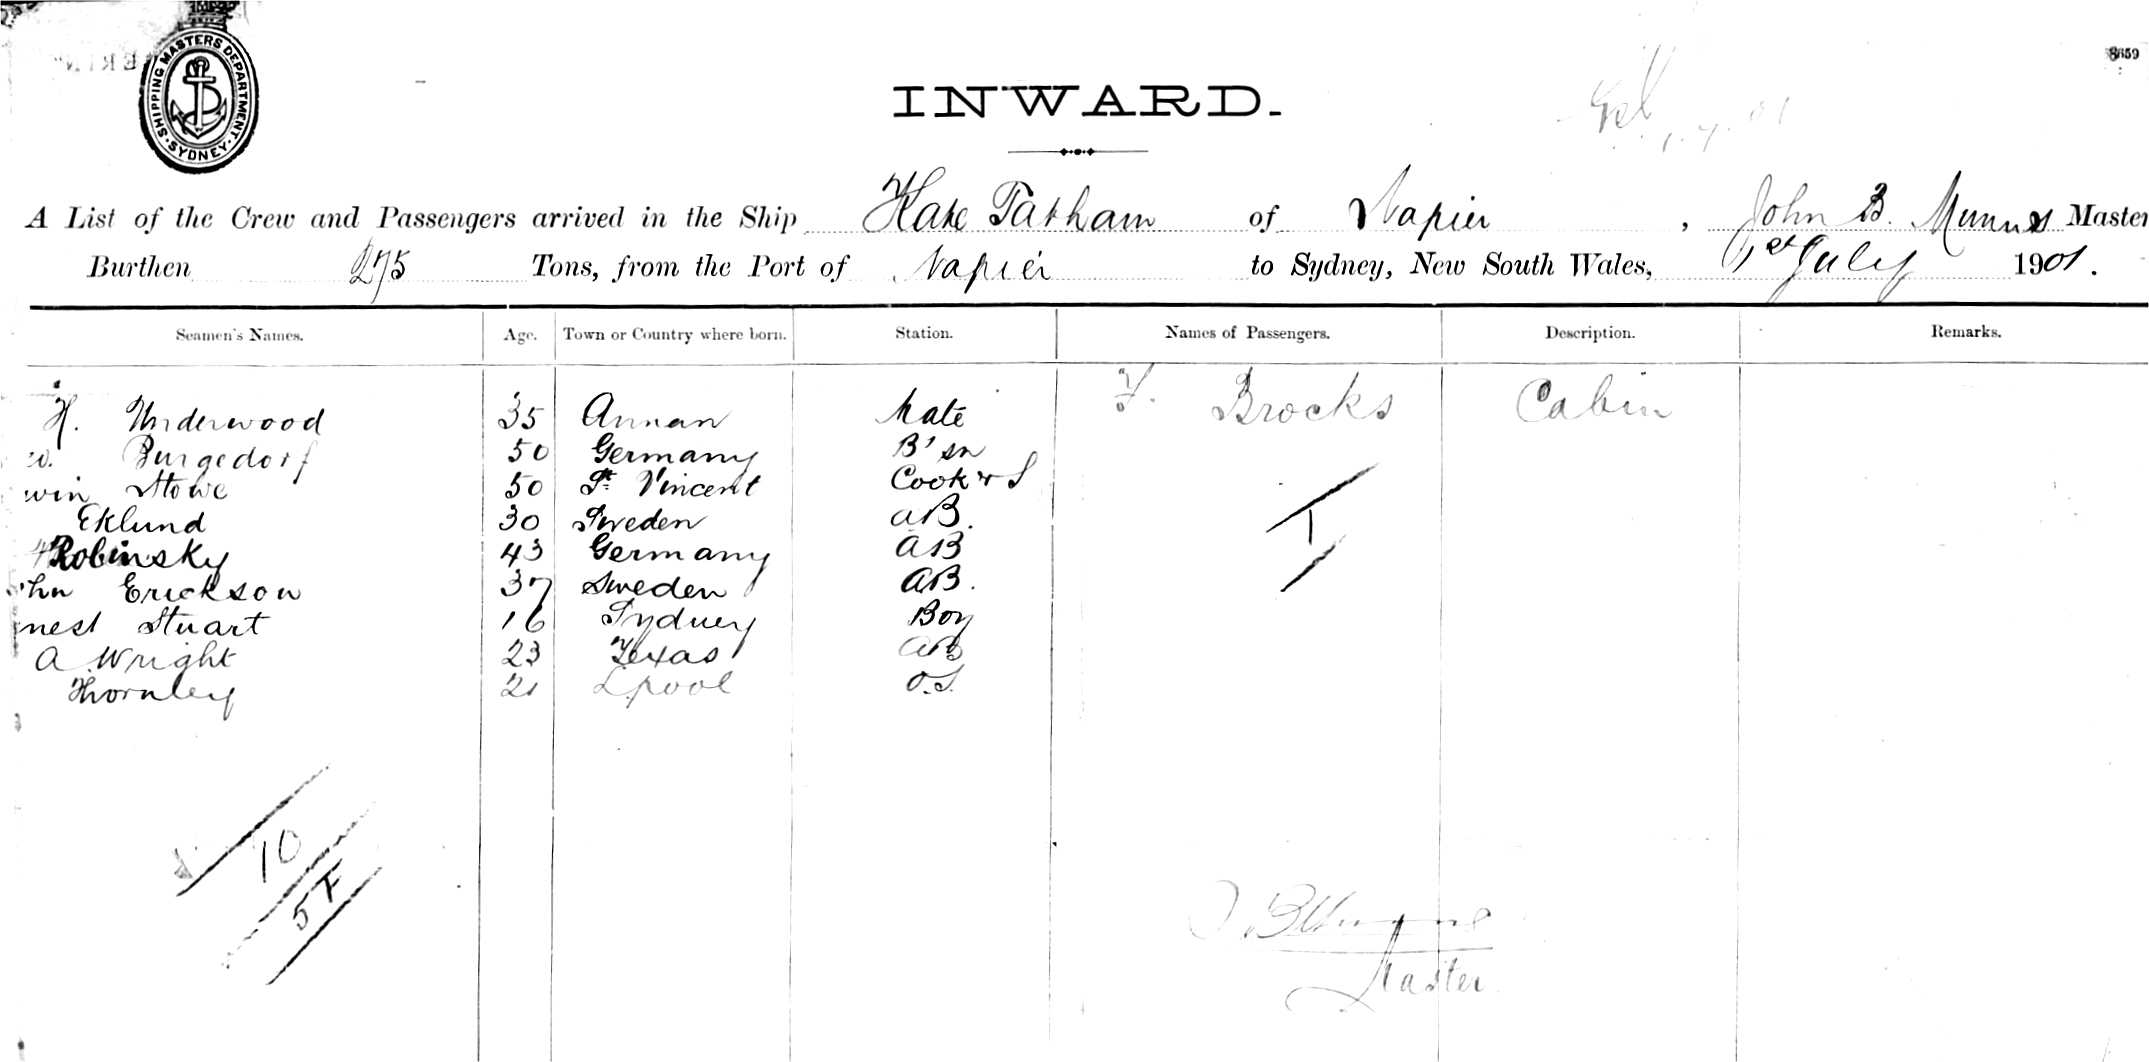 SHIPPING MASTERS DEPARTMENT. SYDNEY.
8659
INWARD.
1.7.01
A List of the Crew and Passengers arrived in the Ship Kate Tatham of Napier, John B. Munns Master
Burthen 275 Tons, from the Port of Napier to Sydney, New South Wales, 1st July 1901.
Seamen's Names. Age. Town or Country where born. Station. Names of Passengers. Description. Remarks.
H. Underwood 35 Annan Mate F. Brocks Cabin
w. Burgedorf 50 Germany B'sn
win Stowe 50 St Vincent Cook & S
Eklund 30 Sweden AB.
Robinsky 43 Germany AB
hn Erickson 37 Sweden AB.
nest Stuart 16 Sydney Boy
A Wright 23 Texas AB
Thornley 21 Lpool O.S.
1
10
5 F
Master